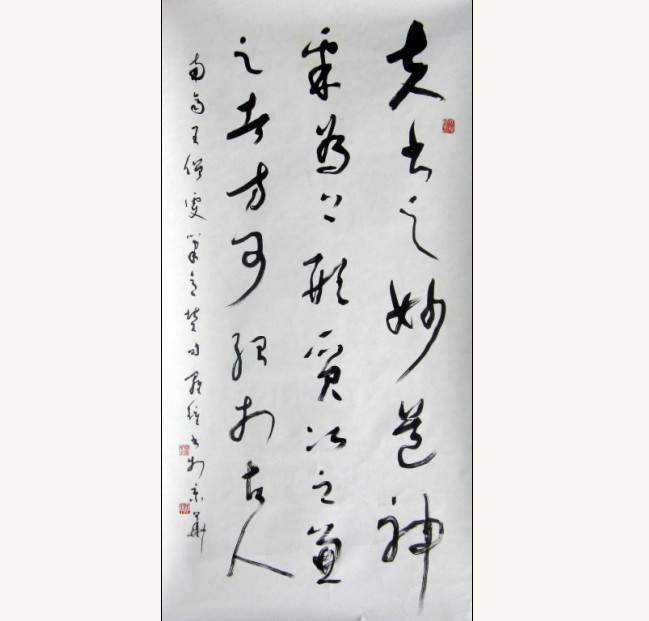 夫书之妙道神
采为上形质次之兼
之者方可绍于古人
南齐王僧虔笔意赞句 维书于京华